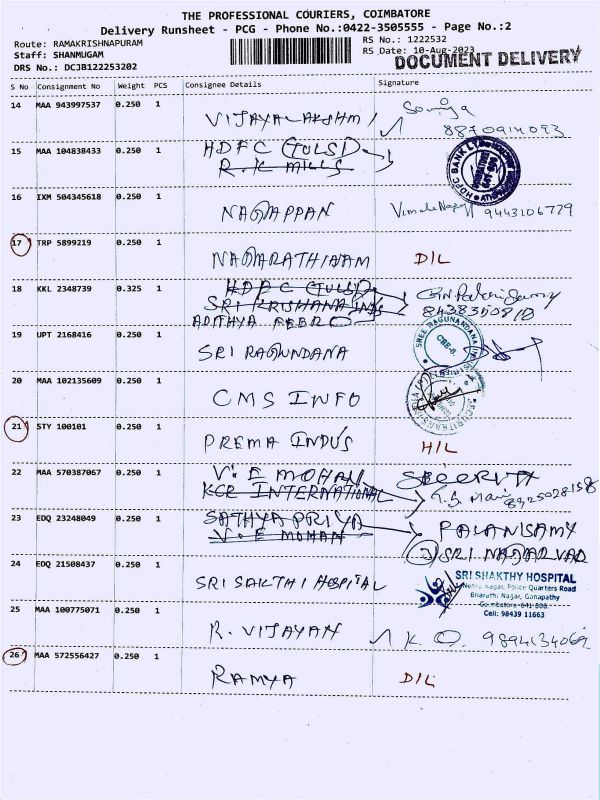 THE PROFESSIONAL COURIERS, COIMBATORE
Delivery Runsheet - PCG - Phone No.:0422-3505555 - Page No.:2
Route: RAMAKRISHNAPURAM
RS No.: 1222532
Staff: SHANMUGAM
RS Date: 10-Aug-2023
DRS No.: DCJB122253202
DOCUMENT DELIVERY
S No Consignment No Weight PCS Consignee Details Signature
14 MAA 943997537 0.250 1 VIJAYALAKSHMI
15 MAA 104838433 0.250 1 HDFC (TULSI)
R.K MILLS
HDFC BANK
16 IXM 504345618 0.250 1 NAGAPPAN 9443106779
17 TRP 5899219 0.250 1 NAGARATHINAM D/L
18 KKL 2348739 0.325 1 HDFC (TULSI)
SRI KRISHANA INDS
ADITHYA FERRO
19 UPT 2168416 0.250 1 SRI RAGUNDANA
SREE RAGUNANDANA INDUSTRIES
CBE-6.
20 MAA 102135609 0.250 1 CMS INFO
21 STY 100101 0.250 1 PREMA INDUS H/L
22 MAA 570387067 0.250 1 V.E MOHAN
KCR INTERNATIONAL
8925028158
23 EDQ 23248049 0.250 1 SATHYA PRIYA PALANISAMY
V.E MOHAN SRI NAGAR VAR
24 EDQ 21508437 0.250 1 SRI SAKTHI HOSPITAL
SRI SHAKTHY HOSPITAL
Nehru Nagar, Police Quarters Road
Bharathi Nagar, Ganapathy
Coimbatore-641 006.
Cell: 98439 11663
25 MAA 100775071 0.250 1 R. VIJAYAN K. O. 9894134069
26 MAA 572556427 0.250 1 RAMYA D/L